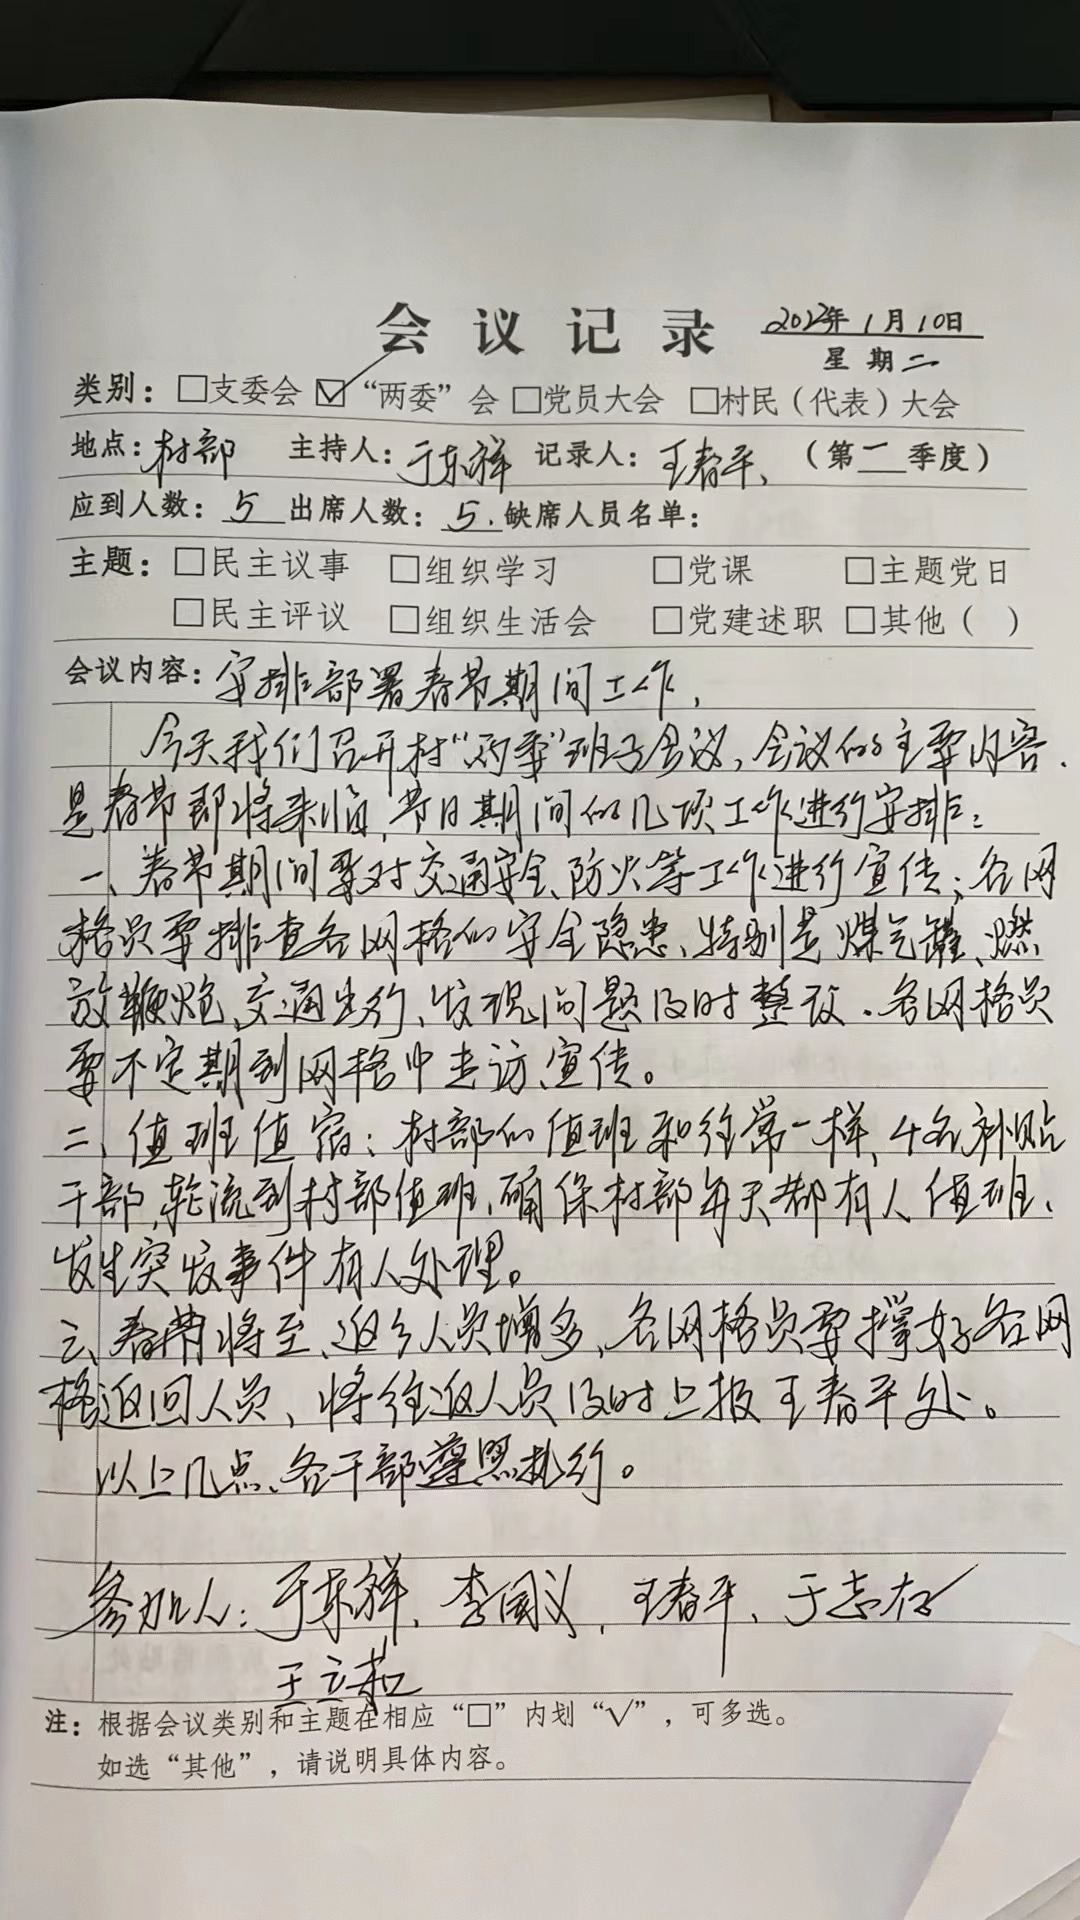 会议记录 2023年1月10日
星期二
类别：□支委会 ☑“两委”会 □党员大会 □村民（代表）大会
地点：村部 主持人：于东祥 记录人：王春平、（第一季度）
应到人数：5 出席人数：5. 缺席人员名单：
主题：□民主议事 □组织学习 □党课 □主题党日
□民主评议 □组织生活会 □党建述职 □其他（ ）
会议内容：安排部署春节期间工作，
今天我们召开村“两委”班子会议，会议的主要内容．
是春节即将来临，节日期间的几项工作进行安排：
一、春节期间要对交通安全、防火等工作进行宣传；各网
格员要排查各网格的安全隐患、特别是煤气罐、燃
放鞭炮、交通出行、发现问题及时整改．各网格员
要不定期到网格中走访、宣传。
二、值班值宿：村部的值班和往常一样，4名补贴
干部，轮流到村部值班、确保村部每天都有人值班、
发生突发事件有人处理。
三、春节将至、返乡人员增多、各网格员要撑好各网
格返回人员、将往返人员及时上报王春平处。
以上几点、各干部遵照执行。
参加人：于东祥、李国义、王春平、于志存
王立茹
注：根据会议类别和主题在相应“□”内划“√”，可多选。
如选“其他”，请说明具体内容。